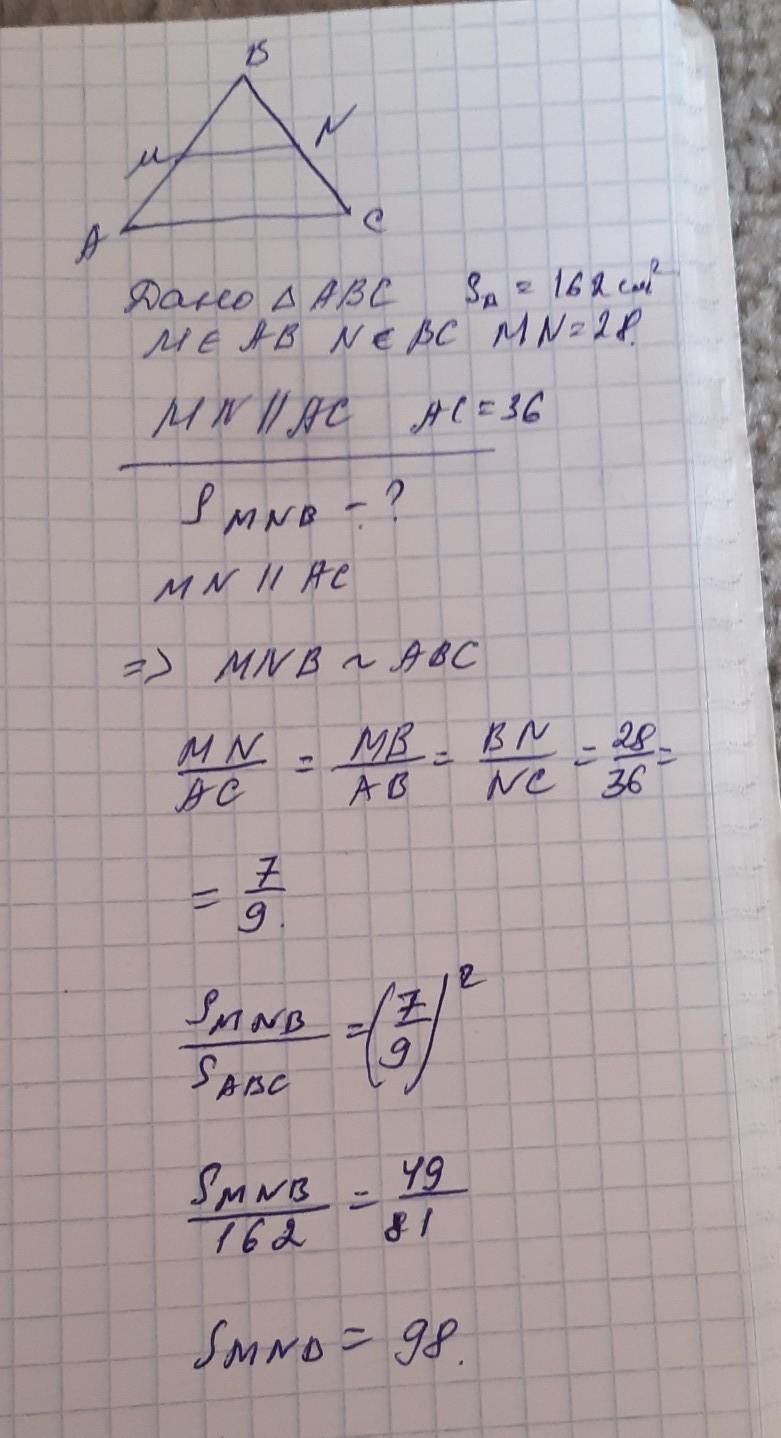 B
M N
A C
Дано △ ABC S△ = 162 см²
M ∈ AB N ∈ BC MN = 28.
MN || AC AC = 36
S MNB - ?
MN || AC
=> MNB ~ ABC
MN/AC = MB/AB = BN/NC = 28/36 =
= 7/9.
S MNB / S ABC = (7/9)²
S MNB / 162 = 49/81
S MNB = 98.